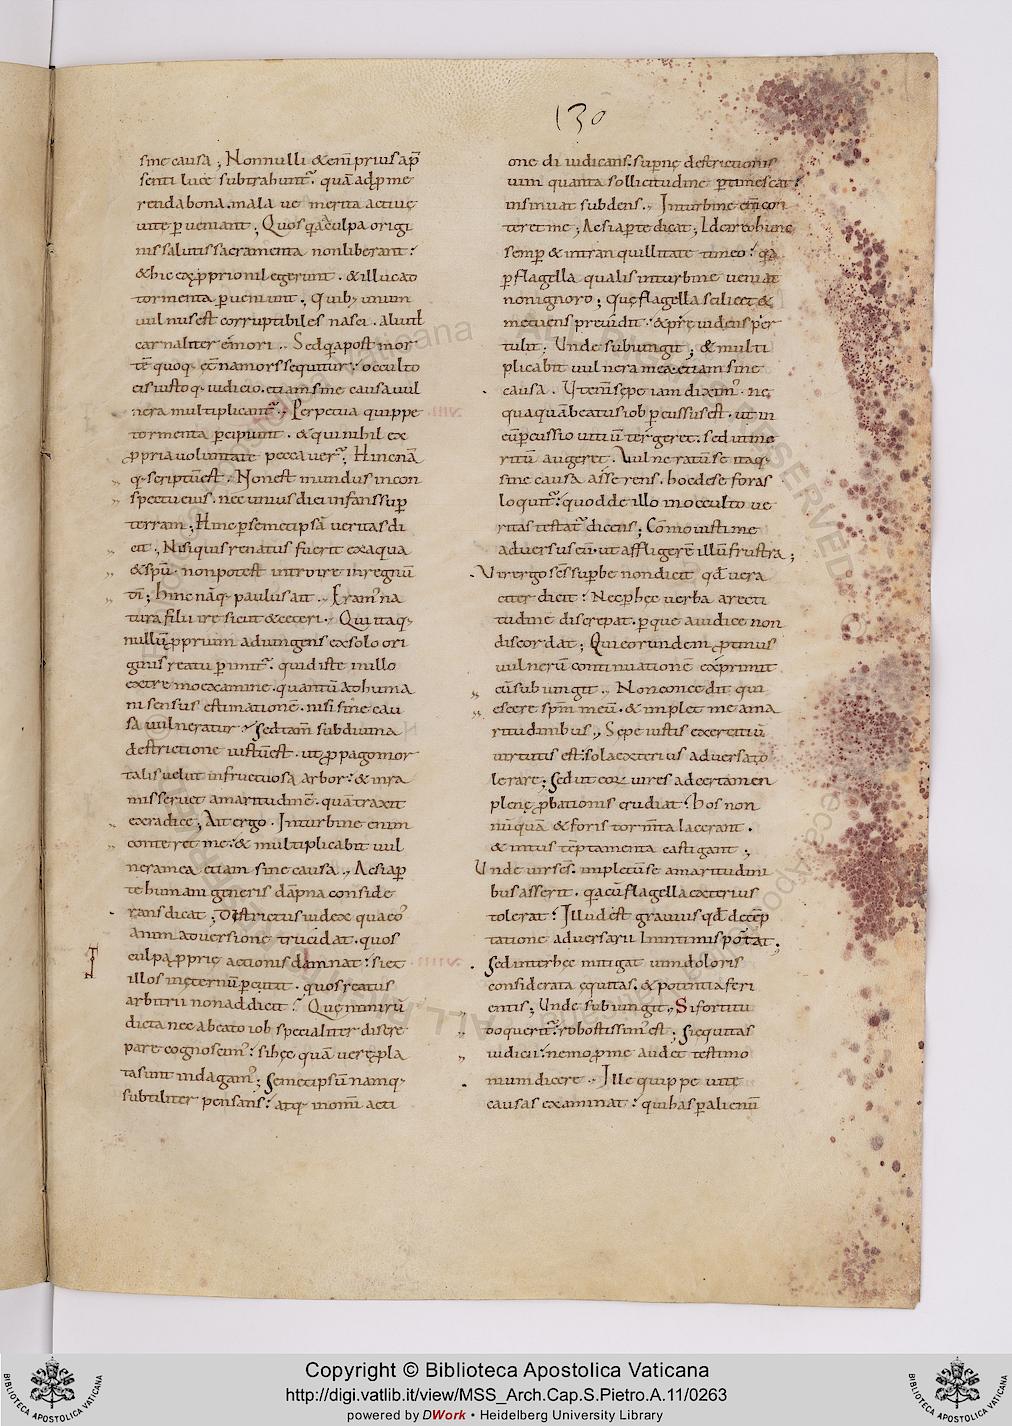 130
sine causa ; Nonnulli &enī prius a p̄
senti luce subtrahunt᷑ . quā adp̄me
renda bona . mala ve merita active
vite ꝑveniant ; Quos q̄a culpa origi
nis salutis sacramenta non liberant :
& hic ex ꝓprio nil egerunt . & illuc ad
tormenta ꝑveniunt . Quib; unum
vulnus est corruptibiles nasci . aliud
carnaliter emori .. Sed q̄a post mor
tē quoq; &ēna mors sequitur : occulto
eis iustoq; iudicio . etiam sine causa vul
nera multiplicant᷑ ., Perpetua quippe
tormenta ꝑcipiunt . & qui nihil ex
ꝓpria voluntate peccaver̄ ; Hinc nā
q; scriptū est . Non est mundus in con
spectu eius . nec unius diei infans suꝑ
terram ; Hinc ꝑ semetipsā veritas di
cit ., Nisi quis renatus fuerit ex aqua
& sp̄u . non potest introire in regnū
dī ; hinc nāq; paulus ait .. Eram᷑ na
tura filii ire sicut & ceteri ., Qui itaq;
nullū ꝓprium adiungens ex solo ori
ginis reatu ꝑimit᷑ . quid iste in illo
extremo examine . quantū ad huma
ni sensus estimationē . nisi sine cau
sa vulneratur : Sed tam̄ sub divina
destrictione iustū est . ut ꝓpago mor
talis velut infructuosa arbor : & in ra
mis servet amaritudinē . quā traxit
ex radice ; Ait ergo . In turbine enim
conteret me : & multiplicabit vul
nera mea etiam sine causa ., Ac si aꝑ
te humani generis dāpna conside
rans dicat ; Districtus iudex qua eo᷑
animadversione trucidat . quos
culpa ꝓprie actionis damnat : si et
illos in eternū ꝑcutit . quos reatus
arbitrii non addicit : Que nimirū
dicta nec a beato iob specialiter discre
pare cognoscim᷑ : si hec quā vere pla
ta sint indagam᷑ ; Semetipsū namq;
subtiliter pensans : atq; in omī acti
one diiudicans . superne destrictionis
vim quanta sollicitudine ꝑtimescat :
insinuat subdens ., In turbine enī con
teret me ; Ac si aꝑte dicat ; Idcirco hunc
semꝑ & in tranquillitate timeo : q̄a
ꝑ flagella qualis in turbine veniat
non ignoro ; Que flagella scilicet &
metuens previdit : & previdens ꝑ
tulit ; Unde subiungit ; & multi
plicabit vulnera mea : etiam sine
causa . Ut enī sepe iam dixim᷑ . ne
quaquā beatus iob ꝑcussus est . ut in
eū ꝑcussio vitiū tergeret : sed ut me
ritū augeret . Vulneratū se itaq;
sine causa asserens . hoc de se foras
loquit᷑ : quod de illo in occulto ve
ritas testat᷑ dicens ; Commovisti me
adversus eū . ut affligerē illū frustra ;
Vir ergo scs superbe non dicit qd̄ vera
citer dicit : Nec ꝑ hec verba a recti
tudine discrepat . ꝑ que a iudice non
discordat ; Qui eorundem ꝓtinus
vulnerū continuationē exprimit
cū subiungit .. Non concedit qui
escere spm̄ meū . & implet me ama
ritudinibus ., Sepe iustis exercitiū
virtutis est : sola exterius adversa to
lerare ; Sed ut eor̄ vires ad certamen
plene ꝓbationis erudiat : hos non
nūquā & foris tormta lacerant .
& intus temptamenta castigant ;
Unde vir scs . impletū se amaritudini
bus asserit . q̄a cū flagella exterius
tolerat : Illud est gravius qd̄ de tēp
tatione adversarii
Sed inter hec mitigat vim doloris
considerata equitas . & potentia feri
entis ; Unde subiungit ., Si fortitu
do querit᷑ : robostissim᷑ est ; Si equitas
iudicii : nemo ꝓ me audet testimo
nium dicere .. Ille quippe vite
causas examinat : qui has ꝑ alienū
Copyright © Biblioteca Apostolica Vaticana
http://digi.vatlib.it/view/MSS_Arch.Cap.S.Pietro.A.11/0263
powered by DWork • Heidelberg University Library
BIBLIOTECA APOSTOLICA VATICANA
BIBLIOTECA APOSTOLICA VATICANA